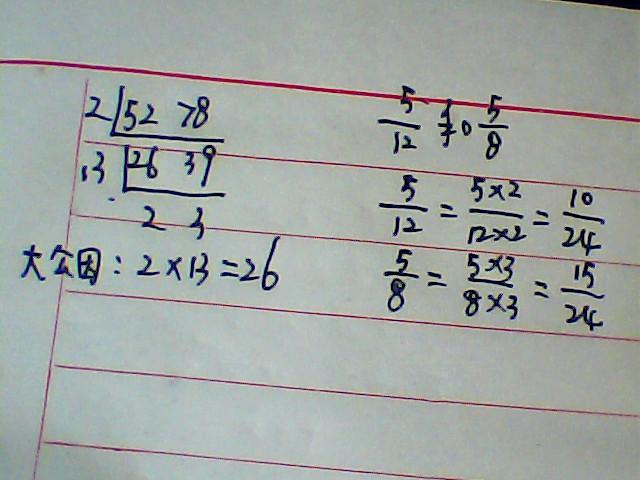 2 52 78
13 26 39
2 3
大公因：2×13=26
5/12 和 5/8
5/12 = 5×2/12×2 = 10/24
5/8 = 5×3/8×3 = 15/24